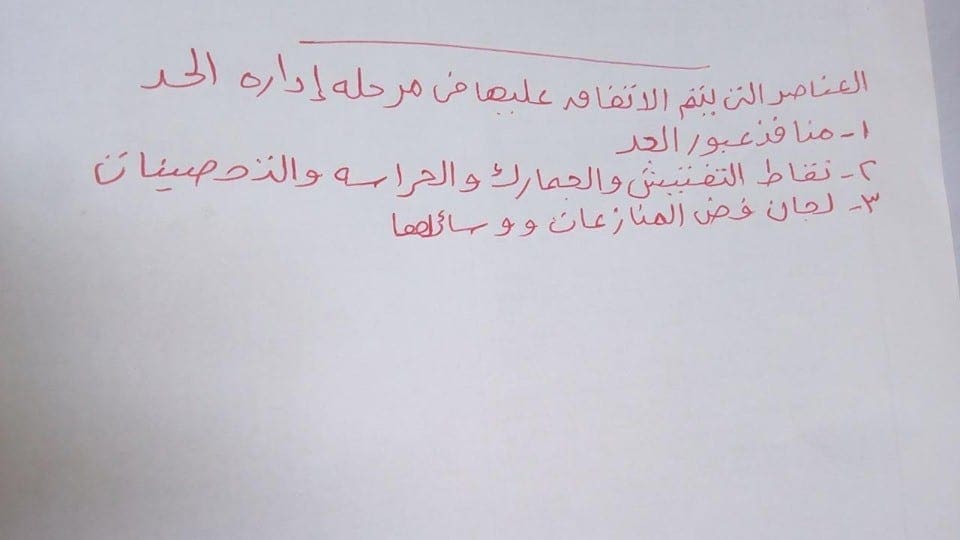 العناصر التى يتم الاتفاق عليها فى مرحله إداره الحد
١- منافذ عبور الحد
٢- نقاط التفتيش والجمارك والحراسه والتحصينات
٣- لجان فض المنازعات ووسائلها